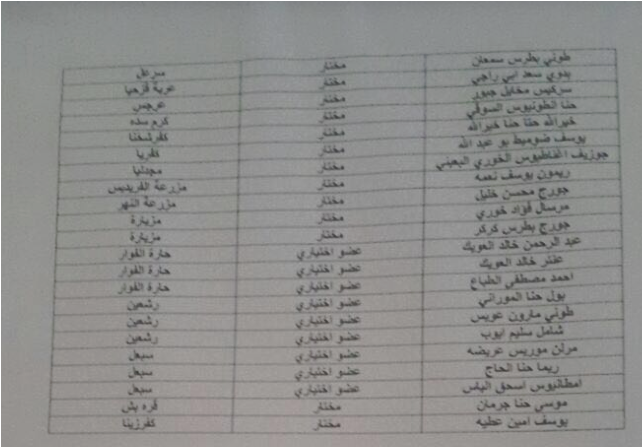 طوني بطرس سمعان مختار سرعل
بدوي سعد ابي راجي مختار عربة قزحيا
سركيس مخايل جبور مختار عرجس
حنا انطونيوس السوقي مختار كرم سده
خيرالله حنا حنا خيرالله مختار
يوسف ضوميط بو عبد الله مختار كفريا
جوزيف اغناطيوس الخوري البعيني مختار مجدليا
ريمون يوسف نعمه مختار مزرعة الفريديس
جورج محسن خليل مختار مزرعة النهر
مرسال فؤاد خوري مختار مزيارة
جورج بطرس كركر مختار مزيارة
عبد الرحمن خالد العويك عضو اختياري حارة الفوار
عنتر خالد العويك عضو اختياري حارة الفوار
احمد مصطفى الطباع عضو اختياري حارة الفوار
بول حنا الموراني عضو اختياري رشعين
طوني مارون عويس عضو اختياري رشعين
شامل سليم ايوب عضو اختياري رشعين
مرلن موريس عريضه عضو اختياري سبعل
ريما حنا الحاج عضو اختياري سبعل
امطانيوس اسحق الياس عضو اختياري سبعل
موسى حنا جرمان مختار قره بش
يوسف امين عطيه مختار كفرزينا